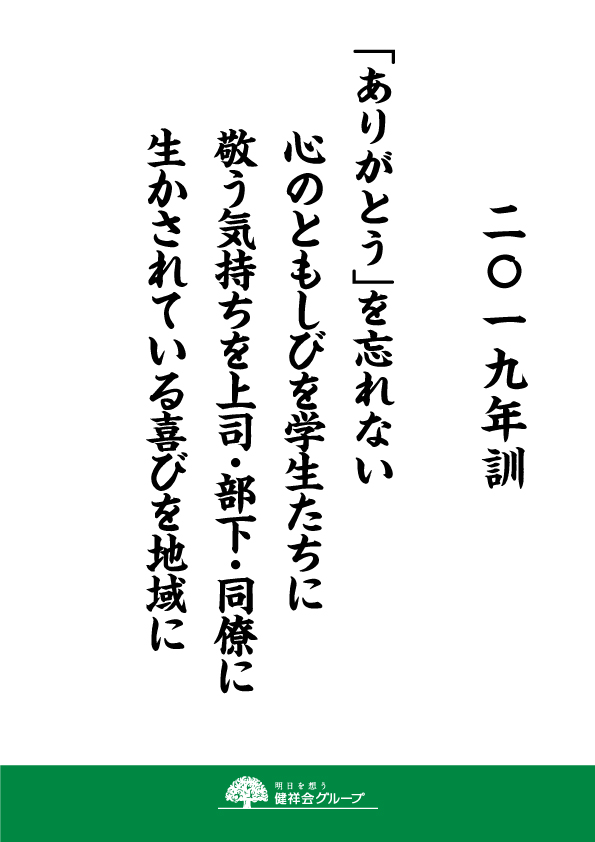 二〇一九年訓
「ありがとう」を忘れない
心のともしびを学生たちに
敬う気持ちを上司・部下・同僚に
生かされている喜びを地域に
明日を想う
健祥会グループ